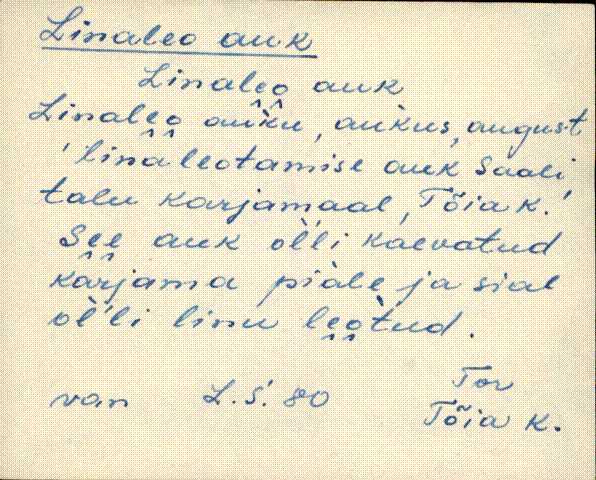 Linaleo auk
Linaleo auk
Linaleo auku, aukus, august
'linaleotamise auk Saali
talu karjamaal, Tõia k.'
See auk òlli kaevatud
karjama piale ja sial
òl'li linu leotud.
van L.S. 80 Tor
Tõia k.